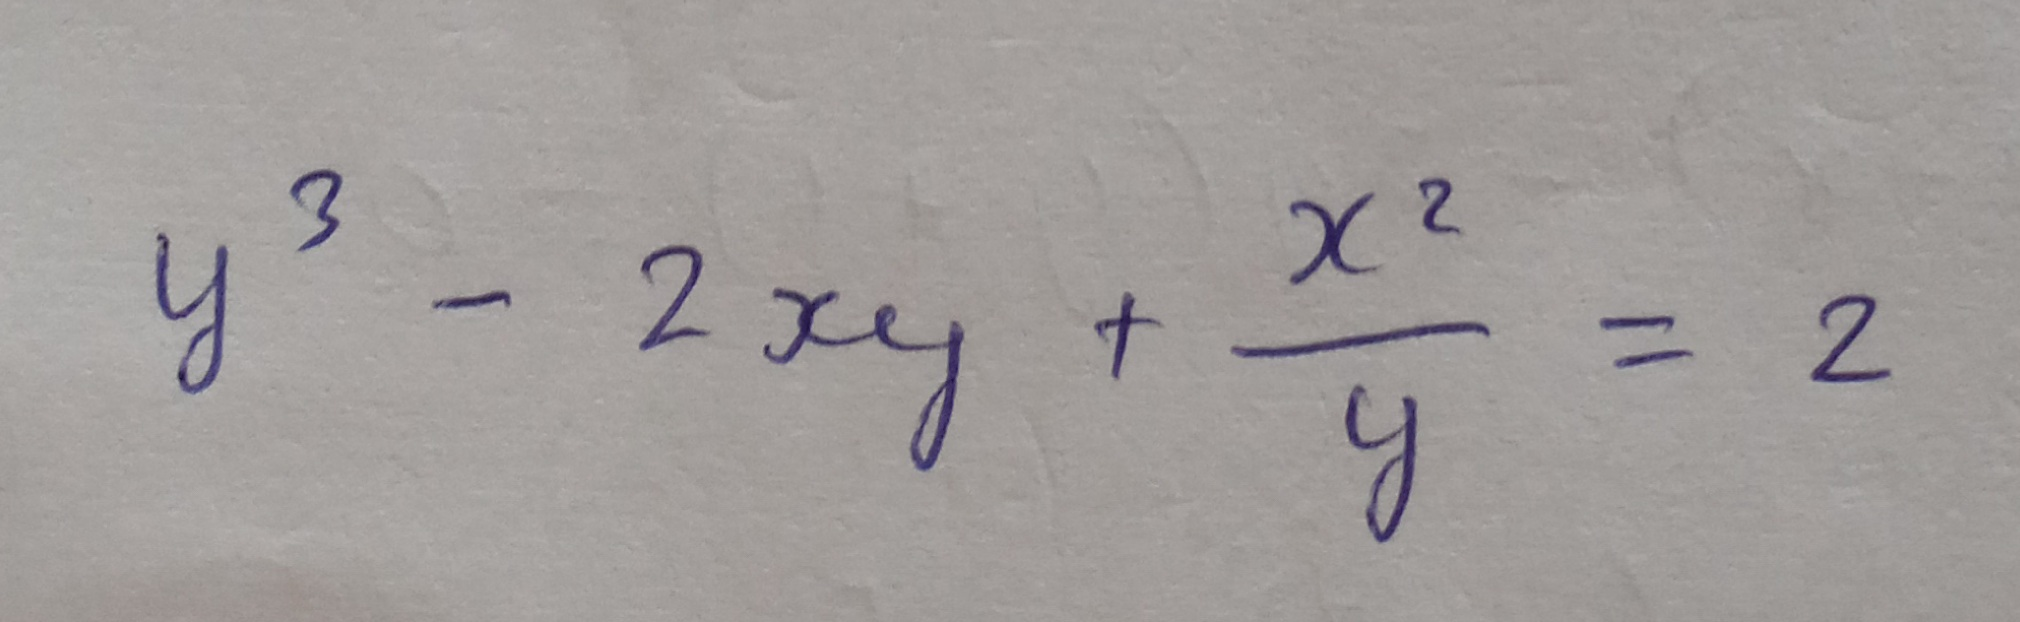 y³ - 2xy + x²/y = 2